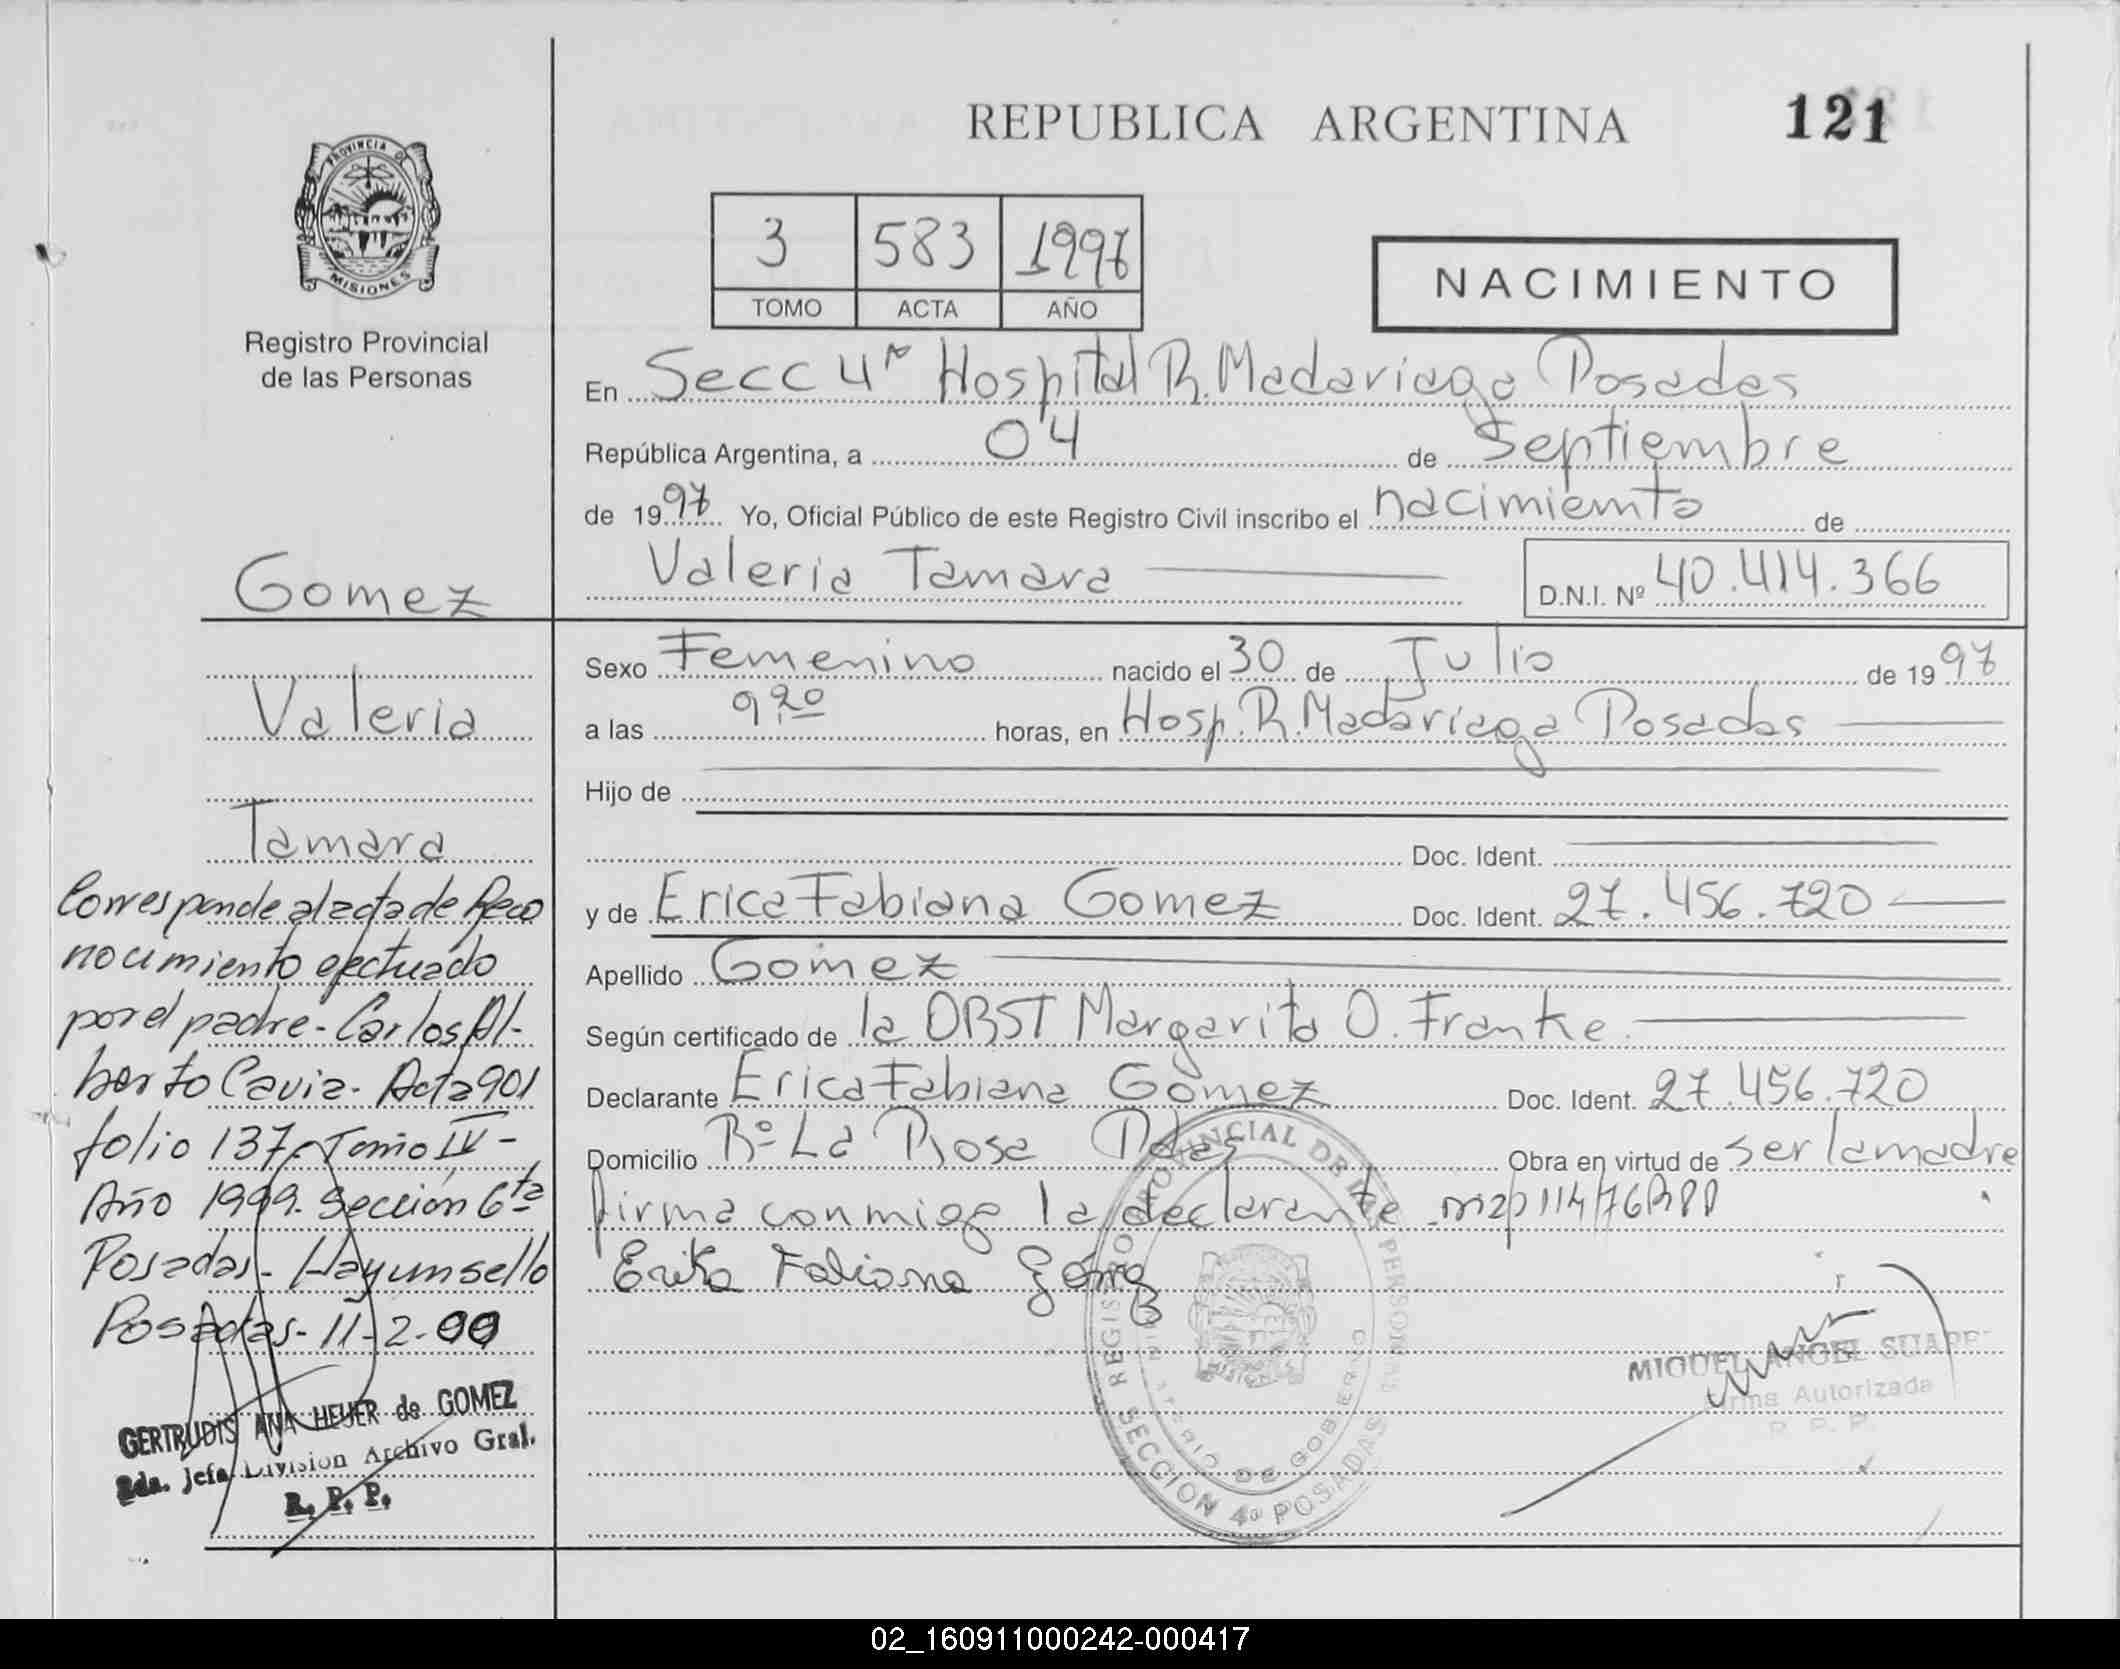 REPUBLICA ARGENTINA
121
PROVINCIA DE
MISIONES
Registro Provincial
de las Personas
3 583 1997
TOMO ACTA AÑO
NACIMIENTO
En Secc 4ª Hospital R. Madariaga Posadas
República Argentina, a 04 de Septiembre
de 1997 Yo, Oficial Público de este Registro Civil inscribo el nacimiento de
Valeria Tamara
D.N.I. Nº 40.414.366
Sexo Femenino nacido el 30 de Julio de 1997
a las 9,20 horas, en Hosp. R. Madariaga Posadas
Hijo de
Doc. Ident.
y de Erica Fabiana Gomez Doc. Ident. 27.456.720
Apellido Gomez
Según certificado de la OBST Margarita O. Franke
Declarante Erica Fabiana Gomez Doc. Ident. 27.456.720
Domicilio Bº La Rosa Pdas Obra en virtud de ser la madre
firma conmigo la declarante
Erika Fabiana Gómez
REGISTRO PROVINCIAL DE LAS PERSONAS
MINISTERIO DE GOBIERNO
SECCION 4ª POSADAS
MIGUEL ANGEL SUAREZ
Firma Autorizada
R. P. P.
Gomez
Valeria
Tamara
Corresponde al acta de Reco
nocimiento efectuado
por el padre - Carlos Al-
berto Cavia - Acta 901
folio 137 - Tomo IV -
Año 1999. Sección 6ta
Posadas - Hay un sello
Posadas - 11-2-00
GERTRUDIS ANA HEUER de GOMEZ
2da. Jefa División Archivo Gral.
R. P. P.
02_160911000242-000417